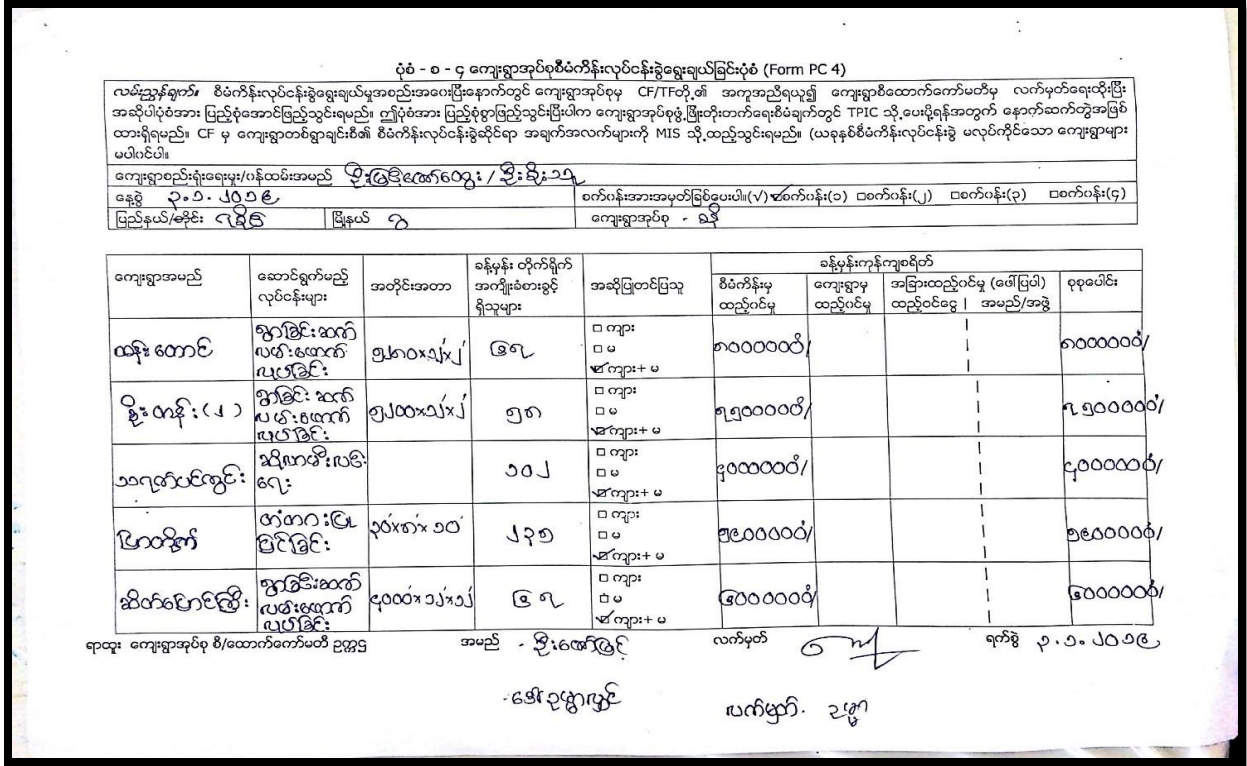 ပုံစံ - စ - ၄ ကျေးရွာအုပ်စုစီမံကိန်းလုပ်ငန်းခွဲရွေးချယ်ခြင်းပုံစံ (Form PC 4)
လမ်းညွှန်ချက်။ စီမံကိန်းလုပ်ငန်းခွဲရွေးချယ်မှုအစည်းအဝေးပြီးနောက်တွင် ကျေးရွာအုပ်စုမှ CF/TFတို့၏ အကူအညီရယူ၍ ကျေးရွာစီထောက်ကော်မတီမှ လက်မှတ်ရေးထိုးပြီး
အဆိုပါပုံစံအား ပြည့်စုံအောင်ဖြည့်သွင်းရမည်။ ဤပုံစံအား ပြည့်စုံစွာဖြည့်သွင်းပြီးပါက ကျေးရွာအုပ်စုဖွံ့ဖြိုးတိုးတက်ရေးစီမံချက်တွင် TPIC သို့ပေးပို့ရန်အတွက် နောက်ဆက်တွဲအဖြစ်
ထားရှိရမည်။ CF မှ ကျေးရွာတစ်ရွာချင်းစီ၏ စီမံကိန်းလုပ်ငန်းခွဲဆိုင်ရာ အချက်အလက်များကို MIS သို့ထည့်သွင်းရမည်။ (ယခုနှစ်စီမံကိန်းလုပ်ငန်းခွဲ မလုပ်ကိုင်သော ကျေးရွာများ
မပါဝင်ပါ။
ကျေးရွာစည်းရုံးရေးမှူး/ဝန်ထမ်းအမည် ဦးမြင့်ဇော်ထွေး / ဦးစိုးသူ
နေ့စွဲ ၃.၁.၂၀၁၉ စက်ဝန်းအားအမှတ်ခြစ်ပေးပါ။(√) ☑စက်ဝန်း(၁) □စက်ဝန်း(၂) □စက်ဝန်း(၃) □စက်ဝန်း(၄)
ပြည်နယ်/တိုင်း ရခိုင် မြို့နယ် ဂွ ကျေးရွာအုပ်စု - ခနီ
ကျေးရွာအမည် ဆောင်ရွက်မည့် လုပ်ငန်းများ အတိုင်းအတာ ခန့်မှန်း တိုက်ရိုက် အကျိုးခံစားခွင့် ရှိသူများ အဆိုပြုတင်ပြသူ ခန့်မှန်းကုန်ကျစရိတ်
စီမံကိန်းမှ ထည့်ဝင်မှု ကျေးရွာမှ ထည့်ဝင်မှု အခြားထည့်ဝင်မှု (ဖေါ်ပြပါ) ထည့်ဝင်ငွေ | အမည်/အဖွဲ့ စုစုပေါင်း
ထန်းတောင် ရွာချင်းဆက် လမ်းဖောက် လုပ်ခြင်း ၅၂၈၀×၁၂×၂ ၆၇ □ ကျား □ မ ☑ ကျား+ မ ၈၀၀၀၀၀၀ိ/ ၈၀၀၀၀၀၀ိ/
စိုးတန်း(၂) ရွာချင်းဆက် လမ်းဖောက် လုပ်ခြင်း ၅၂၀၀×၁၂×၂ ၅၈ □ ကျား □ မ ☑ ကျား+ မ ၇၅၀၀၀၀၀ိ/ ၇၅၀၀၀၀၀ိ/
သရက်ပင်ကွင်း ဆိုလာမီးလင်း ရေး ၁၀၂ □ ကျား □ မ ☑ ကျား+ မ ၄၀၀၀၀၀၀ိ/ ၄၀၀၀၀၀၀ိ/
ပြာတိုက် တံတားပြု ပြင်ခြင်း ၃၀×၈×၁၀ ၂၃၅ □ ကျား □ မ ☑ ကျား+ မ ၅၉၀၀၀၀၀ိ/ ၅၉၀၀၀၀၀ိ/
ဆိတ်ပြောင်ကြီး ရွာချင်းဆက် လမ်းဖောက် လုပ်ခြင်း ၄၀၀၀×၁၂×၁၂ ၆၇ □ ကျား □ မ ☑ ကျား+ မ ၆၀၀၀၀၀၀ိ/ ၆၀၀၀၀၀၀ိ/
ရာထူး ကျေးရွာအုပ်စု စီ/ထောက်ကော်မတီ ဥက္ကဌ အမည် - ဦးဇော်မြင့် လက်မှတ် ရက်စွဲ ၃.၁.၂၀၁၉
- ဒေါ်ဥမ္မာလွင် လက်မှတ်. ဥမ္မာ